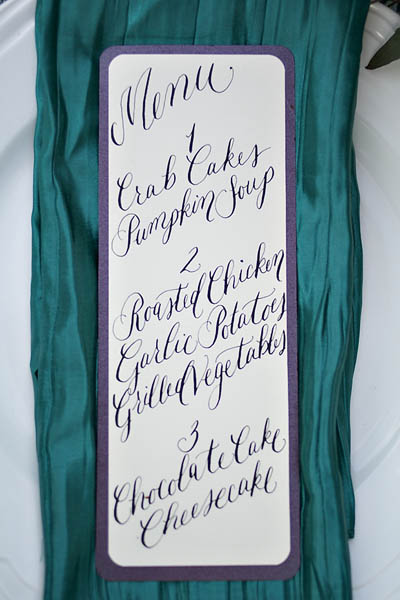 Menu
1
Crab Cakes
Pumpkin Soup
2
Roasted Chicken
Garlic Potatoes
Grilled Vegetables
3
Chocolate Cake
Cheesecake